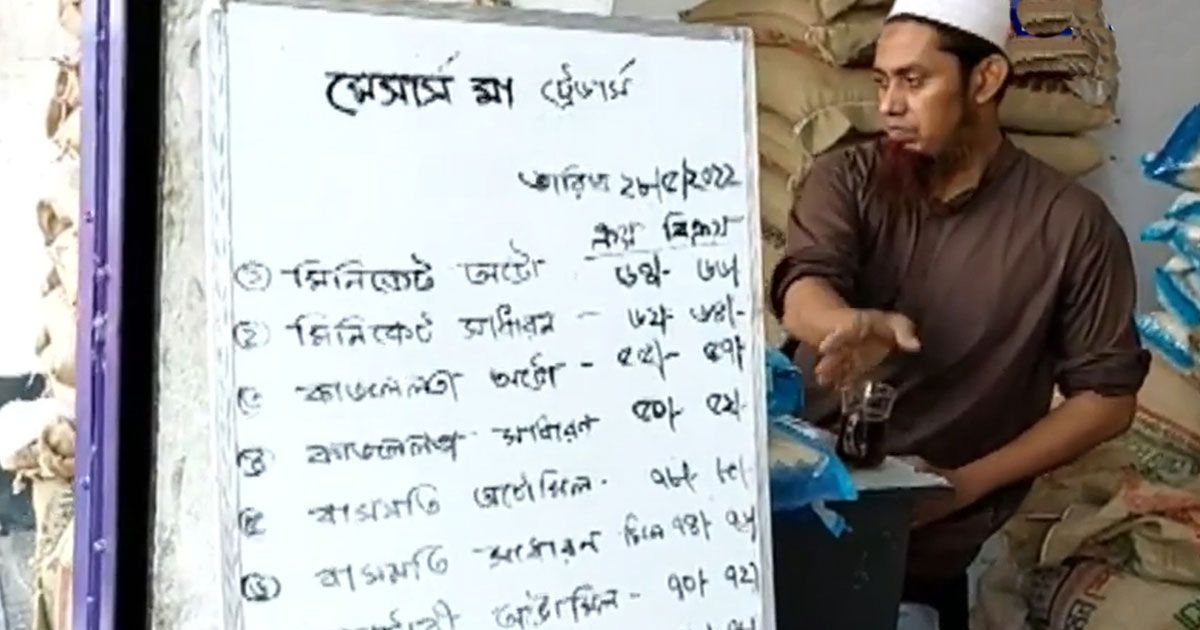 মেসার্স মা ট্রেডার্স
তারিখ ২৮/৫/২০২২
ক্রয় বিক্রয়
১ মিনিকেট অটো ৬৪/- ৬৬/
২ মিনিকেট সাধারন - ৬২/- ৬৪/-
৩ কাজললতা অটো - ৫৫/- ৫৭/
৪ কাজললতা সাধারণ ৫০/- ৫২/-
৫ বাসমতি অটোমিল - ৭৮/-
৬ বাসমতি সাধারন মিল ৭৪/- ৭৬/
অটোমিল - ৭০/- ৭২/